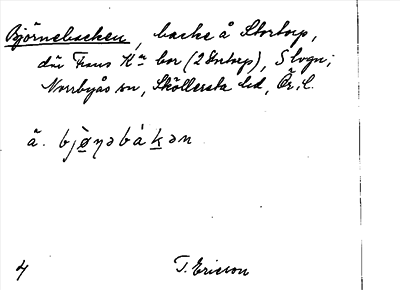 Björnebacken, backe å Stortorp,
där Frans K:n bor (2 Stortorp), S
Norrbyås sn, Sköllersta hd, Ör. l.
ä. bjø̀ṇəbàkən
4
T. Ericson